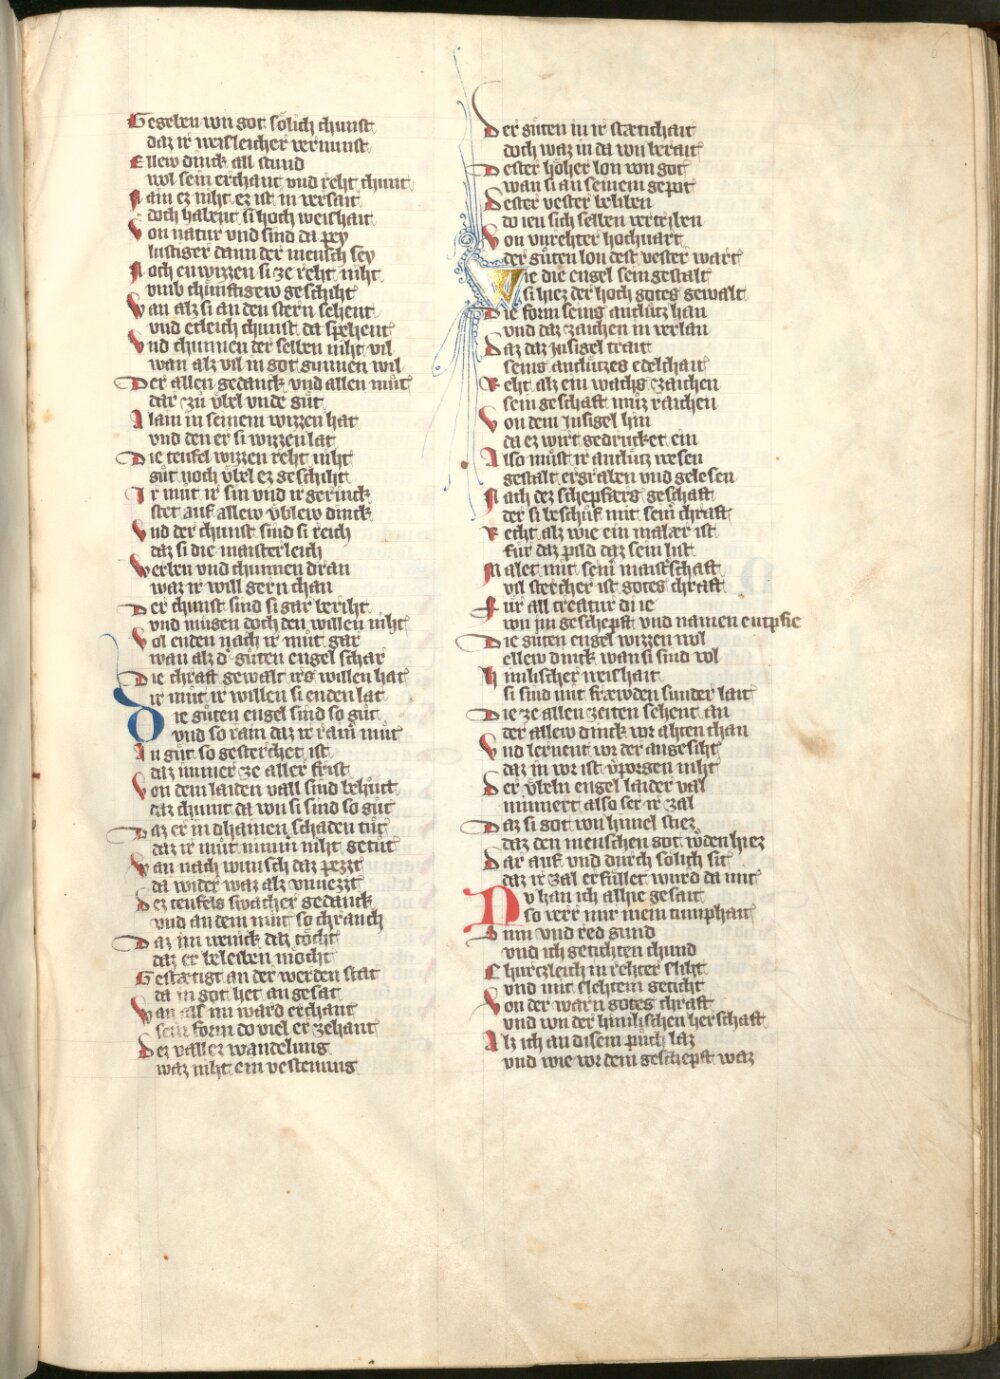 Gegeben von got sölich chunst
daz ir weisleicher vernunst
Ellew dinck all stund
wol sein erchant vnd reht chunt
Nain ez niht ez ist in versait
doch habent si hoch weishait
Von natur vnd sind da pey
lustiger dann der mensch sey
Noch enwizzen si ze reht niht
vmb chunftigew geschiht
Wan alz si an den stern sehent
vnd etleich chunst da spehent
Vnd chunnen der selben niht vil
wan alz vil in got gunnen wil
Der allen gedanck vnd allen müt
dar zů vbel vnde güt
Alain in seinem wizzen hat
vnd den er si wizzen lat
Die teufel wizzen reht niht
güt noch vbel ez geschiht
Ir müt ir sin vnd ir gerinck
stet auf allew vblew dinck
Vnd der chunst sind si reich
daz si die maisterleich
Werben vnd chunnen dran
waz ir will gern chan
Der chunst sind si gar beriht
vnd müsen doch den willen niht
Vol enden nach ir müt gar
wan alz d' güten engel schar
Die chraft gewalt irs willen hat
ir müt ir willen si enden lat
Die güten engel sind so güt
vnd so rain daz ir rain müt
In güt so gesterchet ist
daz immer ze aller frist
Von dem laiden vall sind behütt
daz chumt da von si sind so güt
Daz er in dhainen schaden tüt
daz ir müt nimm niht getüt
Wan nach wunsch daz pezzt
da wider waz alz vnnezzt
Dez teufels swacher gedanck
vnd an dem müt so chranch
Daz im wenick daz töcht
daz er beleiben möcht
Gestætigt an der werden stat
da in got het an gesat
Wan alz im ward erchant
sein form do viel er zehant
Dez vallez wandelung
waz niht ein vestenung
Der güten in ir stætichait
doch waz in da von berait
Dester höher lon von got
wan si an seinem gepot
Dester vester beliben
do ien sich selben vertriben
Von vnrehter hochuart
der güten lon dest vester wart
Wie die engel sein gestalt
si hiez der hoch gotes gewalt
Die form seins antlütz han
vnd daz zaichen in verlan
Daz daz Insigel trait
seins antlützes edelchait
Reht alz ein wachs zaichen
sein geschaft müz raichen
Von dem Insigel hin
da ez wirt gedrucket ein
Also müst ir antlütz wesen
gestalt ergraben vnd gelesen
Nach dez schepfers geschaft
der si beschüf mit seiner chraft
Recht alz wie ein maler ist
für daz pild daz sein list
Malet mit seiner maisterschaft
vil stercher ist gotes chraft
Für all creatur di ie
von im geschepft vnd namen entpfie
Die güten engel wizzen wol
ellew dinck wan si sind vol
Himlischer weishait
si sind mit fræwden sunder lait
Die ze allen zeiten sehent an
der allew dinck vor ahten chan
Vnd lernent vor der angesiht
daz in vor ist vporgen niht
Der vbeln engel laider val
minnert also ser ir zal
Daz si got von himel stiez
daz den menschen got w'den hiez
Dar auf vnd durch sölich sit
daz ir zal erfüllet wurd da mit
Nu han ich alhie gesait
so verr mir mein tumphait
Sinn vnd red gund
vnd ich getichten chund
Churtzleich in rehter sliht
vnd mit slehtem geticht
Von der warn gotes chraft
vnd von der himlischen herschaft
Alz ich an disem puch laz
vnd wie vor dem geschepft waz